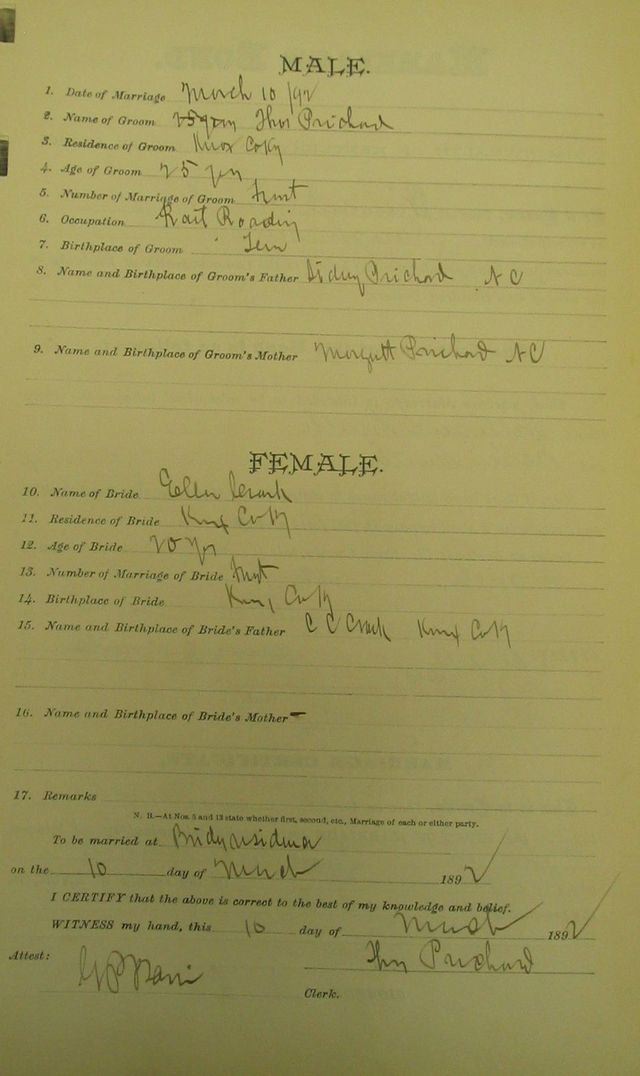 MALE.
1. Date of Marriage March 10 / 92
2. Name of Groom 25 yrs Thos Prichard
3. Residence of Groom Knox Co Ky
4. Age of Groom 25 yrs
5. Number of Marriage of Groom First
6. Occupation Rail Roading
7. Birthplace of Groom Tenn
8. Name and Birthplace of Groom's Father Sidney Prichard N C
9. Name and Birthplace of Groom's Mother Margrett Prichard N C
FEMALE.
10. Name of Bride Ellen
11. Residence of Bride Knox Co Ky
12. Age of Bride 20 yrs
13. Number of Marriage of Bride First
14. Birthplace of Bride Knox Co Ky
15. Name and Birthplace of Bride's Father C C Knox Co Ky
16. Name and Birthplace of Bride's Mother –
17. Remarks
N. B.—At Nos. 5 and 13 state whether first, second, etc., Marriage of each or either party.
To be married at
on the 10 day of March 1892
I CERTIFY that the above is correct to the best of my knowledge and belief.
WITNESS my hand, this 10 day of March 1892
Thos Prichard
Attest:
Clerk.